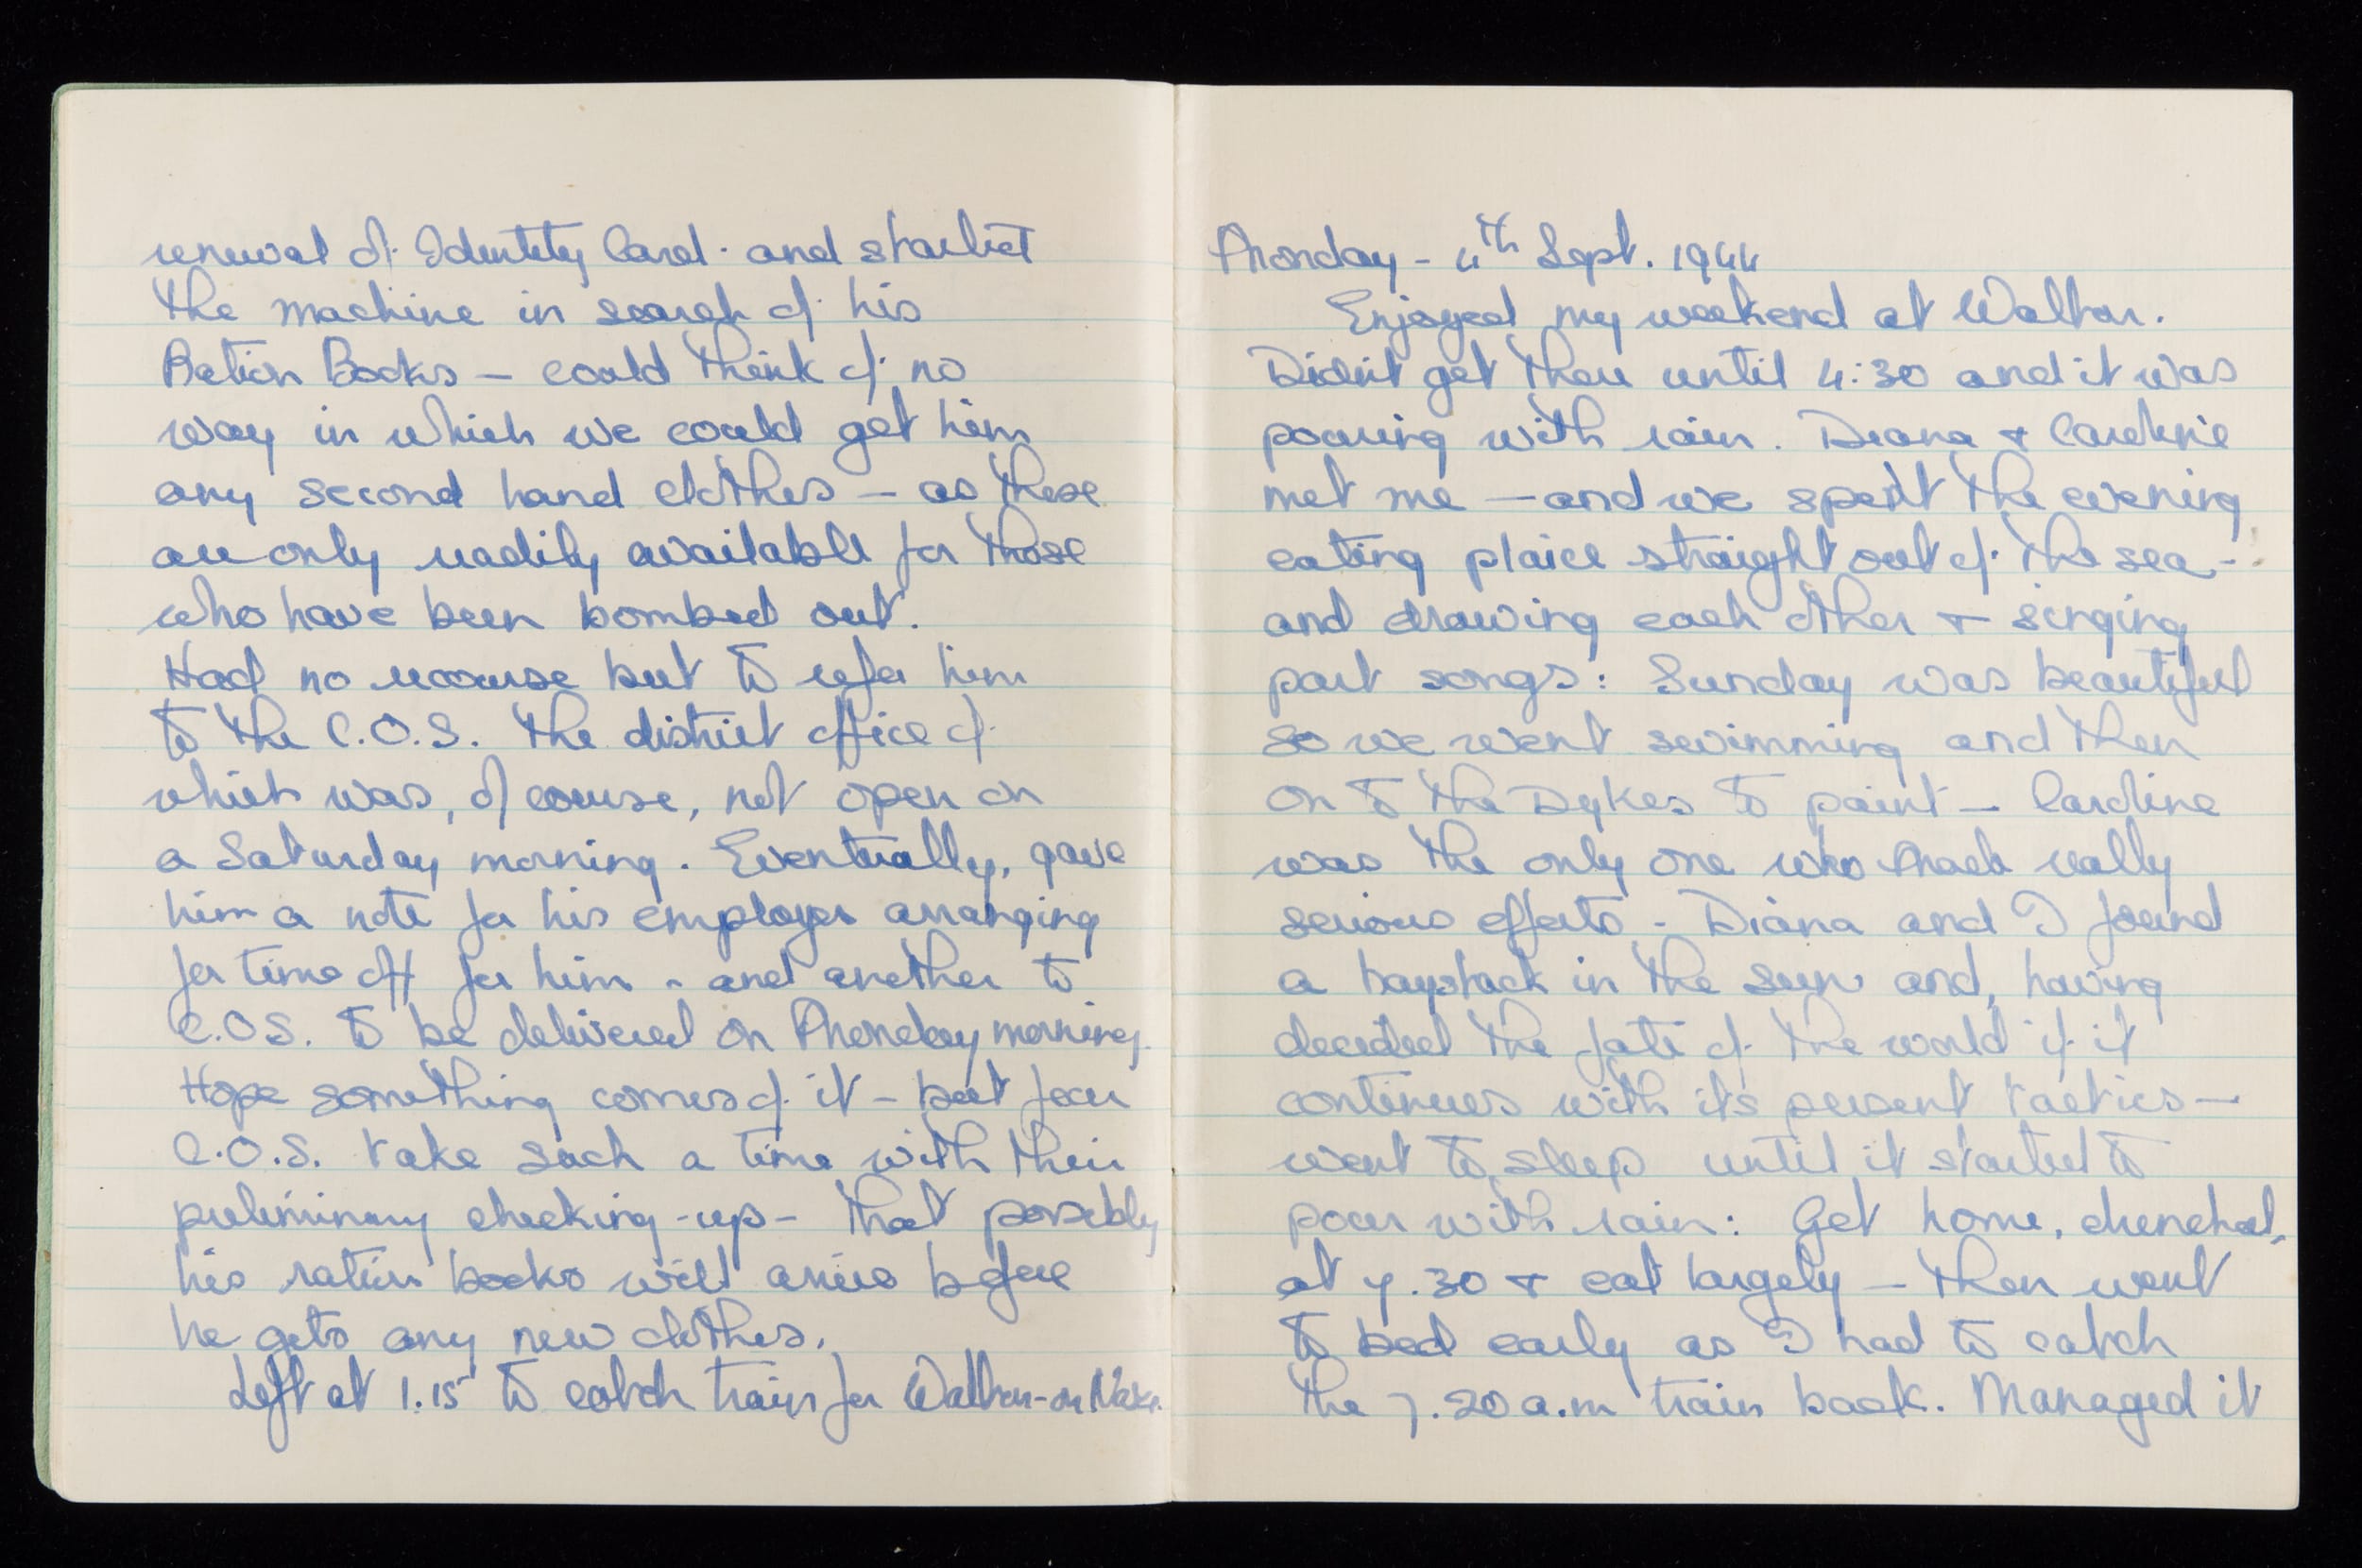 renewal of Identity Card. and started
the machine in search of his
Ration Books – could think of no
way in which we could get him
any second hand clothes – as these
are only readily available for those
who have been bombed out.
Had no recourse but to refer him
to the C.O.S. the district office of
which was, of course, not open on
a Saturday morning. Eventually, gave
him a note for his employer arranging
for time off for him – and another to
C.O.S. to be delivered on Monday morning.
Hope something comes of it – but fear
C.O.S. take such a time with their
preliminary checking-up – that possibly
his ration books will arrive before
he gets any new clothes.
Left at 1.15 to catch train for Walton-on Naze.
Monday – 4th Sept. 1944
Enjoyed my weekend at Walton.
Didn't get there until 4:30 and it was
pouring with rain. Diana + Caroline
met me – and we spent the evening
eating plaice straight out of the sea –
and drawing each other + singing
part songs: Sunday was beautiful
so we went swimming and then
on to the Dykes to paint – Caroline
was the only one who made really
serious efforts – Diana and I found
a haystack in the sun and, having
decided the fate of the world if it
continues with its present tactics –
went to sleep until it started to
pour with rain: Get home, drenched,
at 7.30 + eat largely – then went
to bed early as I had to catch
the 7.20 a.m train back. Managed it